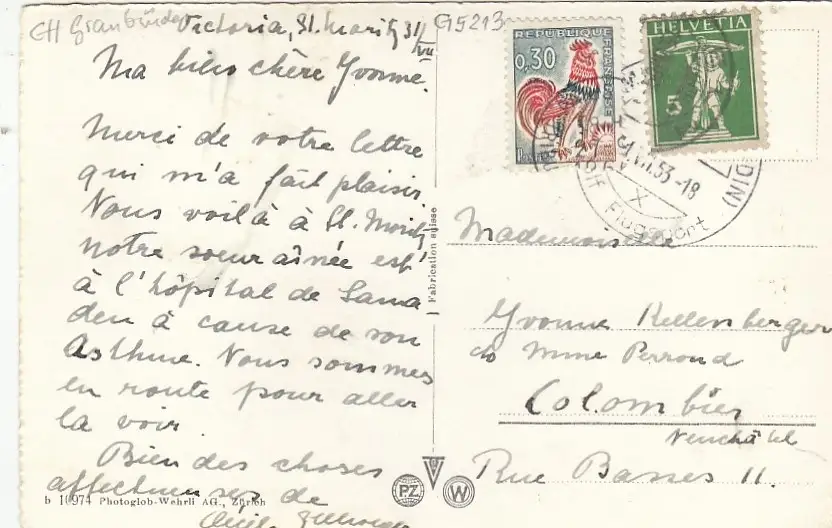 CH Graubünden
G5213
Victoria, St. Moritz 31/VII
Ma bien chère Yvonne.
Merci de votre lettre
qui m'a fait plaisir.
Nous voilà à St. Moritz
notre soeur aînée est
à l'hôpital de Sama
den à cause de son
Asthme. Nous sommes
en route pour aller
la voir.
Bien des choses
affectueuses de
b 10974 Photoglob-Wehrli AG., Zürich
Fabrication suisse
PZ
W
REPUBLIQUE
FRANÇAISE
0,30
HELVETIA
5
31.VII.53-18
DIN)
Mademoiselle
Yvonne Kellenberger
c/o Mme Perroud
Colombier
Neuchâtel
Rue Basses 11.